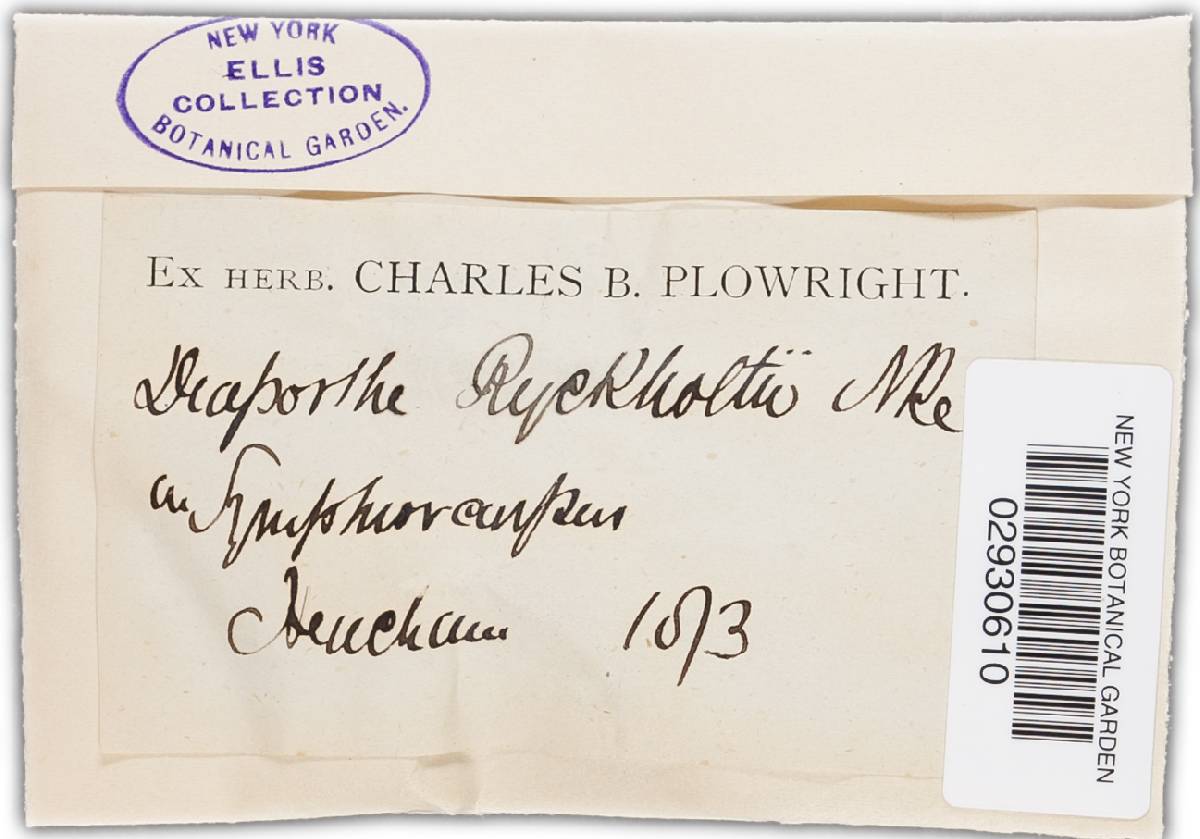 NEW YORK
ELLIS
COLLECTION
BOTANICAL GARDEN.
EX HERB. CHARLES B. PLOWRIGHT.
Diaporthe Ryckholtii Nke
on Symphoricarpus
1873
NEW YORK BOTANICAL GARDEN
02930610